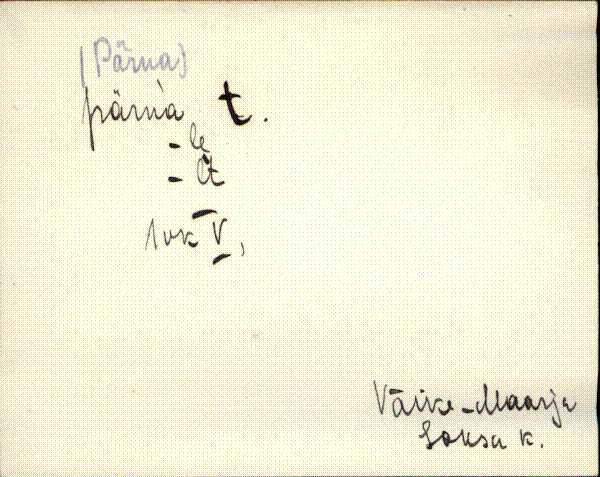 (Pärna)
pärn̆a t.
- le
- lt
1vk V,
Väike-Maarja
Loksa k.